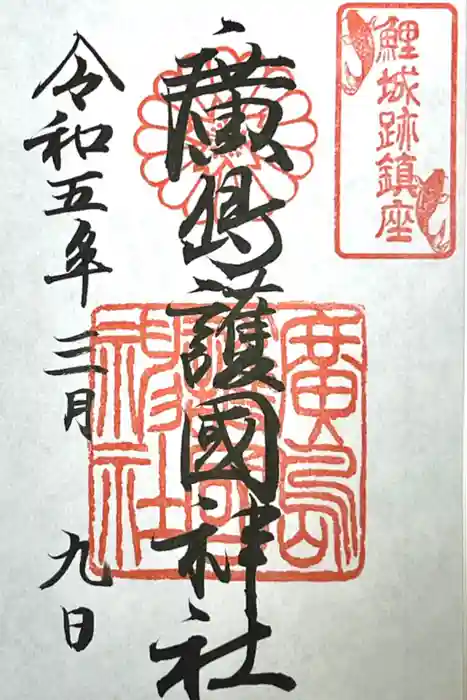 鯉城跡鎮座
廣島護國神社
廣島護國神社
令和五年三月九日